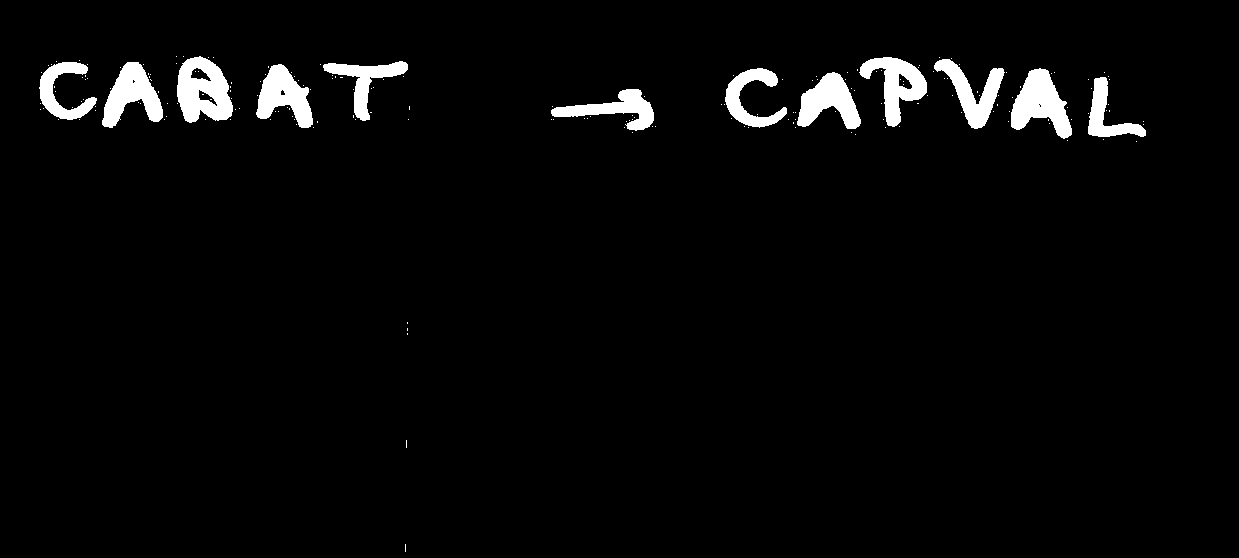 CABAT → CAPVAL